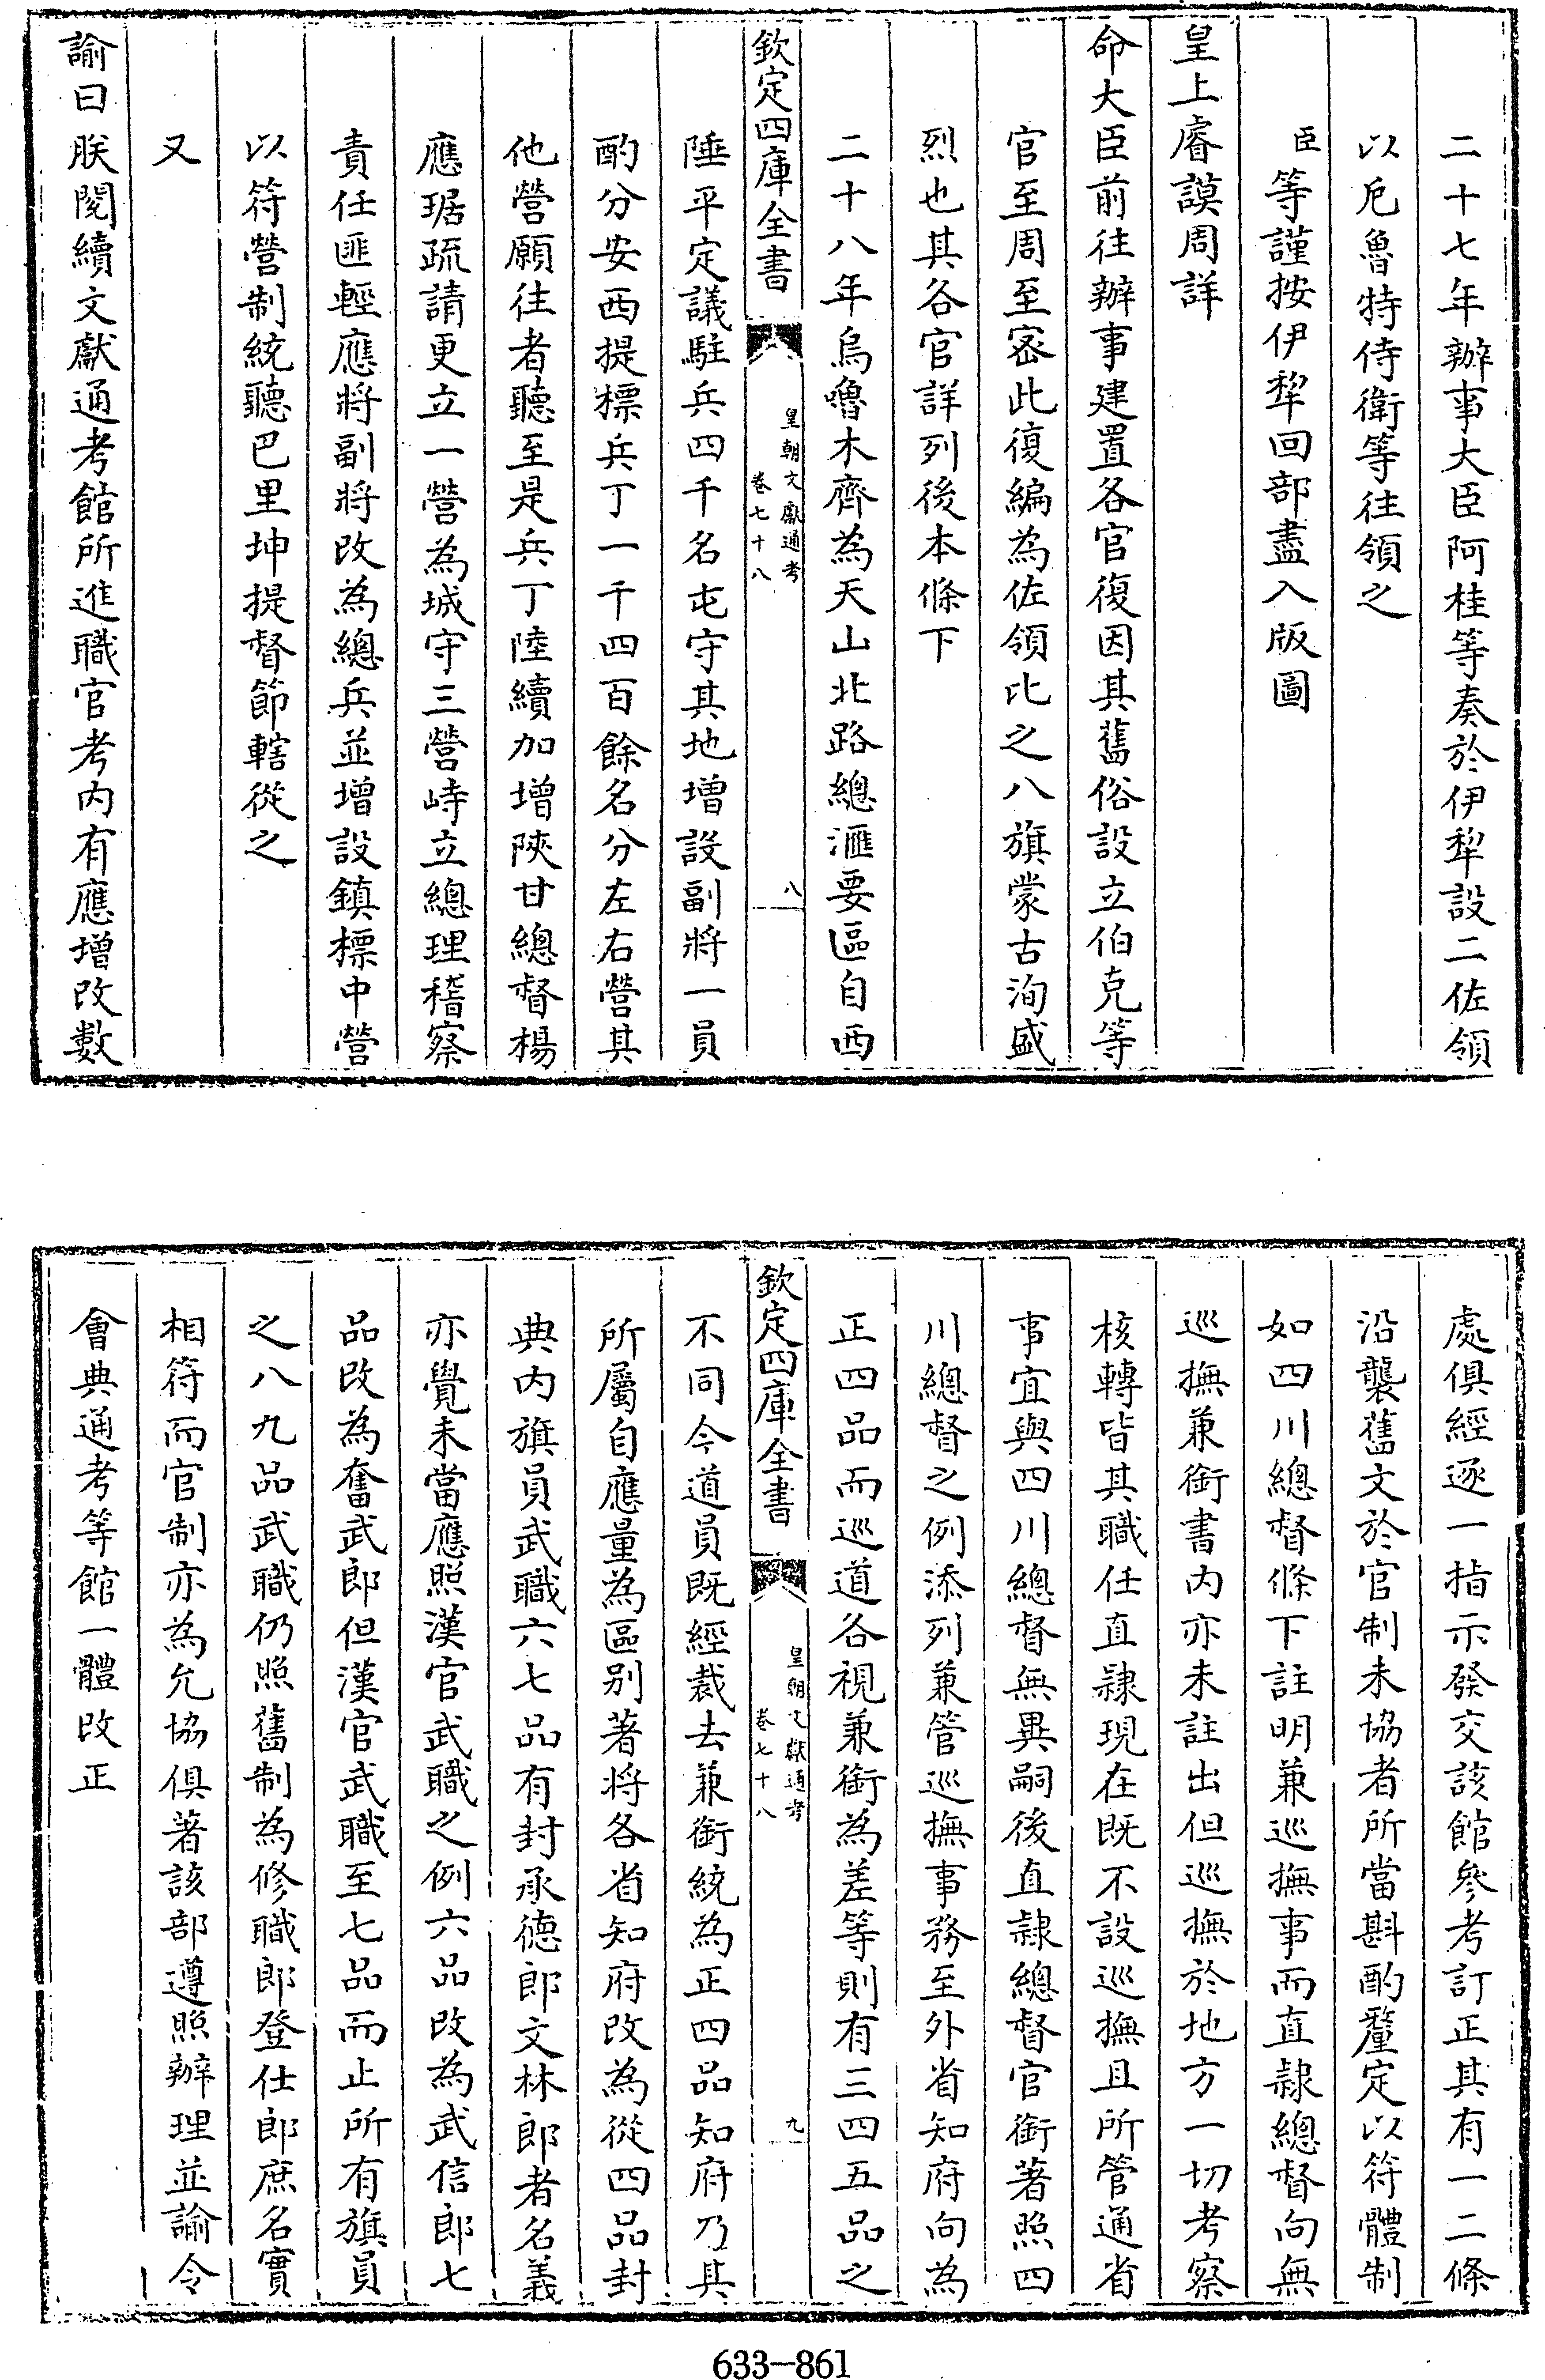 二十七年辦事大臣阿桂等奏於伊犂設二佐領
以厄魯特侍衛等往領之
臣等謹按伊犂回部盡入版圖
皇上睿謨周詳
命大臣前往辦事建置各官復因其舊俗設立伯克等
官至周至宻此復編為佐領比之八旗蒙古洵盛
烈也其各官詳列後本條下
二十八年烏嚕木齊為天山北路總滙要區自西
欽定四庫全書
皇朝文獻通考
卷七十八
八
陲平定議駐兵四千名屯守其地増設副將一員
酌分安西提標兵丁一千四百餘名分左右營其
他營願往者聽至是兵丁陸續加增陜甘總督楊
應琚疏請更立一營為城守三營峙立總理稽察
責任匪輕應將副將改為總兵並增設鎮標中營
以符營制統聽巴里坤提督節轄從之
又
諭曰朕閱續文獻通考館所進職官考内有應增改數
處俱經逐一指示發交該館參考訂正其有一二條
沿襲舊文於官制未協者所當斟酌釐定以符體制
如四川總督條下註明兼巡撫事而直隸總督向無
巡撫兼銜書内亦未註出但巡撫於地方一切考察
核轉皆其職任直隸現在既不設巡撫且所管通省
事宜與四川總督無異嗣後直隸總督官銜著照四
川總督之例添列兼管巡撫事務至外省知府向為
正四品而巡道各視兼銜為差等則有三四五品之
欽定四庫全書
皇朝文獻通考
卷七十八
九
不同今道員既經裁去兼銜統為正四品知府乃其
所屬自應量為區别著將各省知府改為從四品封
典内旗員武職六七品有封承德郎文林郎者名義
亦覺未當應照漢官武職之例六品改為武信郎七
品改為奮武郎但漢官武職至七品而止所有旗員
之八九品武職仍照舊制為修職郎登仕郎庶名實
相符而官制亦為允協俱著該部遵照辦理並諭令
會典通考等館一體改正
633-861